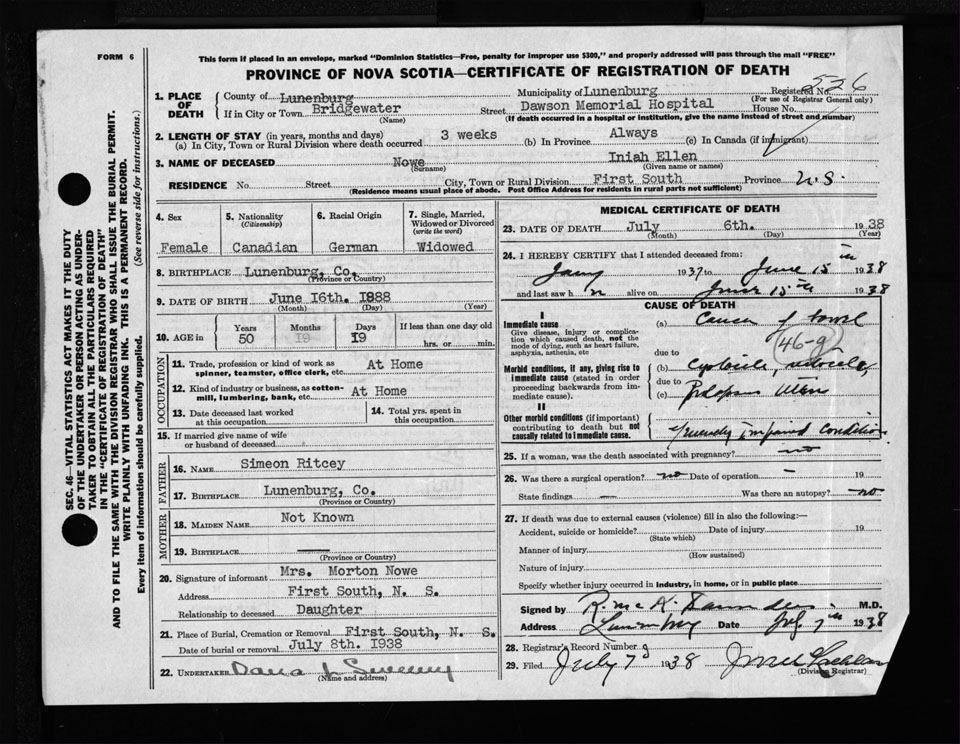 FORM 6
This form if placed in an envelope, marked "Dominion Statistics—Free, penalty for improper use $300," and properly addressed will pass through the mail "FREE"
PROVINCE OF NOVA SCOTIA—CERTIFICATE OF REGISTRATION OF DEATH
526
1. PLACE OF DEATH
County of Lunenburg Municipality of Lunenburg Registered No.
(For use of Registrar General only)
If in City or Town Bridgewater Street Dawson Memorial Hospital House No.
(Name) (If death occurred in a hospital or institution, give the name instead of street and number)
2. LENGTH OF STAY (in years, months and days)
(a) In City, Town or Rural Division where death occurred 3 weeks (b) In Province Always (c) In Canada (if immigrant)
3. NAME OF DECEASED Nowe Iniah Ellen
(Surname) (Given name or names)
RESIDENCE No. Street City, Town or Rural Division First South Province N.S.
(Residence means usual place of abode. Post Office Address for residents in rural parts not sufficient)
4. Sex Female
5. Nationality (Citizenship) Canadian
6. Racial Origin German
7. Single, Married, Widowed or Divorced (write the word) Widowed
8. BIRTHPLACE Lunenburg, Co.
(Province or Country)
9. DATE OF BIRTH June 16th. 1888
(Month) (Day) (Year)
10. AGE in Years 50 Months 19 Days 19 If less than one day old hrs. or min.
OCCUPATION
11. Trade, profession or kind of work as spinner, teamster, office clerk, etc. At Home
12. Kind of industry or business, as cotton-mill, lumbering, bank, etc. At Home
13. Date deceased last worked at this occupation
14. Total yrs. spent in this occupation
15. If married give name of wife or husband of deceased
FATHER
16. NAME Simeon Ritcey
17. BIRTHPLACE Lunenburg, Co.
(Province or Country)
MOTHER
18. MAIDEN NAME Not Known
19. BIRTHPLACE —
(Province or Country)
20. Signature of informant Mrs. Morton Nowe
Address First South, N. S.
Relationship to deceased Daughter
21. Place of Burial, Cremation or Removal First South, N. S.
Date of burial or removal July 8th. 1938
22. UNDERTAKER Dana L Sweeny
(Name and address)
MEDICAL CERTIFICATE OF DEATH
23. DATE OF DEATH July 6th. 1938
(Month) (Day) (Year)
24. I HEREBY CERTIFY that I attended deceased from:
Jany 1937 to June 15th 1938
and last saw h alive on June 15th 1938
CAUSE OF DEATH
I
Immediate cause
Give disease, injury or complication which caused death, not the mode of dying, such as heart failure, asphyxia, asthenia, etc
(a) Cancer of bowel
46-9
due to
Morbid conditions, if any, giving rise to immediate cause (stated in order proceeding backwards from immediate cause).
(b) Cystocele, rectocele
due to
(c) Prolapsus Uteri
II
Other morbid conditions (if important) contributing to death but not causally related to immediate cause.
Generally impaired condition
25. If a woman, was the death associated with pregnancy? no
26. Was there a surgical operation? no Date of operation — 19
State findings — Was there an autopsy? no
27. If death was due to external causes (violence) fill in also the following:—
Accident, suicide or homicide? Date of injury 19
(State which)
Manner of injury
(How sustained)
Nature of injury
Specify whether injury occurred in industry, in home, or in public place
Signed by R. McK. Saunders M.D.
Address Lunenburg Date July 7th 1938
28. Registrar's Record Number 9
29. Filed July 7 1938
(Division Registrar)
SEC. 46—VITAL STATISTICS ACT MAKES IT THE DUTY
OF THE UNDERTAKER OR PERSON ACTING AS UNDER-
TAKER TO OBTAIN ALL THE PARTICULARS REQUIRED
IN THE "CERTIFICATE OF REGISTRATION OF DEATH"
AND TO FILE THE SAME WITH THE DIVISION REGISTRAR WHO SHALL ISSUE THE BURIAL PERMIT.
WRITE PLAINLY WITH UNFADING INK. THIS IS A PERMANENT RECORD.
Every item of information should be carefully supplied. (See reverse side for instructions.)